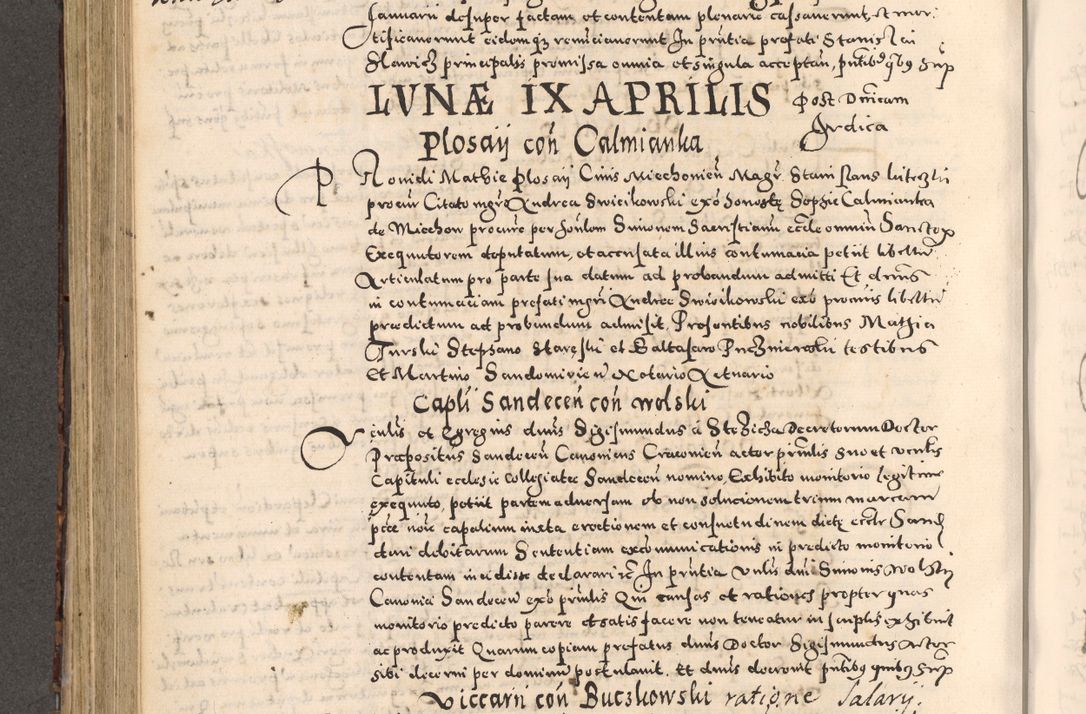 Januarii desuper factam et contentam plenarie cassaverunt et mor-
tificaverunt eidemq₃ renunciaverunt In pñtia prefati Stanislai
Slavicz principalis promissa omnia et singula acceptan, pñtib₉ q̃b₉ sup
LVNÆ IX APRILIS post Dnicam
Plosaij coñ Calmianka Judica
Providi Mathie Plosaij Civis Miechovieñ Magr̃ Stanislaus
procur Citato mgrõ Andrea Swiecikowski exõ honestę Sophie Calmianka
de Miechow procur̃e per hõnlem Simonem Sacristianu eccłe omniũ Sanctoꝝ
Exequutorem deputatum, et accusata illius contumacia petiit libellũ
Articulatum pro parte sua datum ad probandum admitti Et dnũs
in contumaciam prefati mgrĩ Andree Swiecikowski exõ procuris libellũ
prædictum ad probandum admisit, Presentibus nobilibus Mathia
Turski Stephano et Baltasaro testibus
Et Martino Sandomirieñ Notario Actuario
Capłi Sandeceñ coñ Wolski
et Egregius dnus Sigismundus a Stezicza Decretorum Doctor
Præpositus Sandeceñ Canonicus Cracovieñ actor prinĩlis suo et veñlis
Capituli ecclesie Collegiatæ Sandeceñ nomine, Exhibito monitorio legitime
exequuto, petiit partem adversam ob non solucionem trium marcarũ
capalium iuxta erectionem et consuetudinem dictę eccłe Sand
debitarum Sententiam excõmunicationis in predicto monitorio
contentam incidisse declarari &c In pñtia Vnlis dnĩ Simonis Wolski
Canonici Sandeceñ exõ prinĩlis Qui causas et rationes propter quas
monitorio predicto parere et satisfacere non teneatur in scriptis exhibuit
ac produxit Quarum copiam prefatus dnus Doctor Sigismundus Actor
sibi decerni per dominum postulavit, Et dnus decrevit pñtib₉ quib₉ sup
Viccarii coñ Buczkowski ratione Salarij.